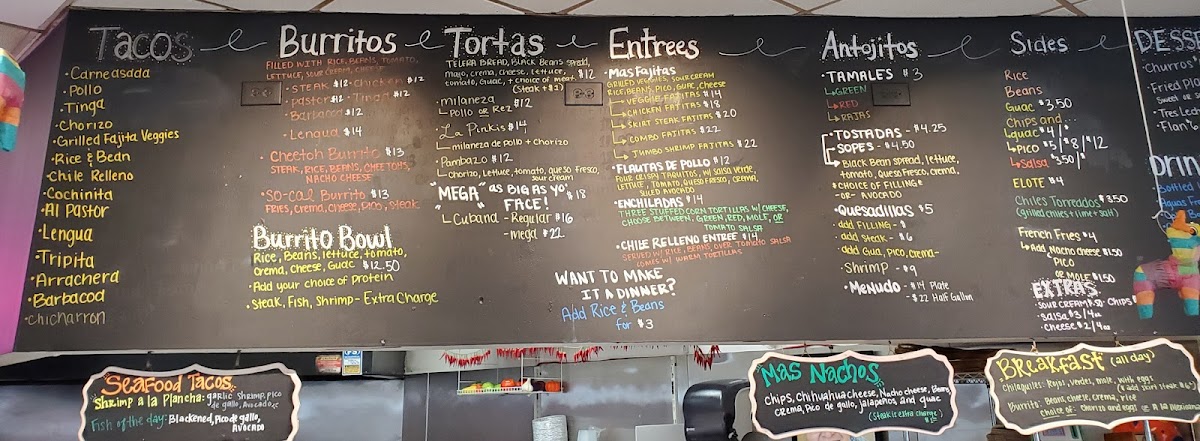 Tacos
·Carneasada
·Pollo
·Tinga
·Chorizo
·Grilled Fajita Veggies
·Rice & Bean
·Chile Relleno
·Cochinita
·Al Pastor
·Lengua
·Tripita
·Arrachera
·Barbacod
·chicharron
Burritos
FILLED WITH RICE, BEANS, TOMATO,
LETTUCE, SOUR CREAM, CHEESE
·STEAK $12 ·Chicken $12
·pastor $12 ·Tinga $12
·Barbacod $12
·Lengua $14
·Cheetoh Burrito $13
STEAK, RICE, BEANS, CHEETOHS,
NACHO CHEESE
·So-cal Burrito $13
FRIES, CREMA, CHEESE, PICO, STEAK
Burrito Bowl
Rice, Beans, lettuce, tomato,
Crema, Cheese, Guac $12.50
·Add your choice of protein
·Steak, Fish, Shrimp - Extra Charge
Tortas
TELERA BREAD, BLACK BEANS SPREAD,
mayo, crema, cheese, lettuce,
tomato, Guac, + choice of meat $12
(Steak + $1)
·milaneza
Pollo OR Rez $12
·La Pinkis $14
milaneza de pollo + Chorizo
·Pambazo $12
Chorizo, Lettuce, tomato, queso Fresco,
sour cream
"MEGA" AS BIG AS YO'
FACE! $18
Cubana - Regular $16
- Mega $22
Entrees
·Mas Fajitas
GRILLED VEGGIES, SOUR CREAM
RICE, BEANS, PICO, GUAC, CHEESE
VEGGIE FAJITAS $14
CHICKEN FAJITAS $18
SKIRT STEAK FAJITAS $20
COMBO FAJITAS $22
JUMBO SHRIMP FAJITAS $22
·FLAUTAS DE POLLO $12
FOUR CRISPY TAQUITOS, W/ SALSA VERDE,
LETTUCE, TOMATO, QUESO FRESCO, CREMA,
SLICED AVOCADO
·ENCHILADAS $14
THREE STUFFED CORN TORTILLAS W/ CHEESE,
CHOOSE BETWEEN, GREEN, RED, MOLE, OR
TOMATO SALSA
·CHILE RELLENO ENTREE $14
SERVED W/ RICE, BEANS, OVER TOMATO SALSA
COMES W/ WARM TORTILLAS
WANT TO MAKE
IT A DINNER?
Add Rice & Beans
for $3
Antojitos
·TAMALES $3
GREEN
RED
RAJAS
·TOSTADAS - $4.25
SOPES - $4.50
BLACK Bean spread, lettuce,
tomato, Queso Fresco, crema,
*CHOICE OF FILLING*
-OR- AVOCADO
·Quesadillas $5
add FILLING - $
add Steak - $6
add Gua, Pico, Crema-
·Shrimp - $9
·Menudo - $14 Plate
- $22 Half Gallon
Sides
Rice
Beans
Guac $3.50
Chips and...
Guac $4/$
Pico $5/$8/$12
Salsa $3.50/$
ELOTE $4
Chiles Toreados $3.50
(grilled chiles + lime + salt)
French Fries $4
Add Nacho cheese $1.50
PICO
OR MOLE $1.50
EXTRAS
·SOUR CREAM $.50 ·CHIPS $
·SALSA $3/4oz
·CHEESE $2/4oz
DESS
·Churros
·Fried Pla
Sweet or S
·Tres Lec
·Flan
Drin
·Bottled
·Aguas
SEAFOOD TACOS
Shrimp a la Plancha: garlic Shrimp, Pico
de gallo, Avocado, etc
Fish of the day: Blackened, Pico de gallo,
AVOCADO
MAS NACHOS
CHIPS, Chihuahua cheese, Nacho cheese, Beans
CREMA, Pico de gallo, jalapeños and guac
(Steak is extra charge)
BREAKFAST (all day)
Chilaquiles: Rojos, verdes, mole, with eggs
Burrito: Beans, cheese, crema, rice
choice of: chorizo and eggs or a la Mexicana